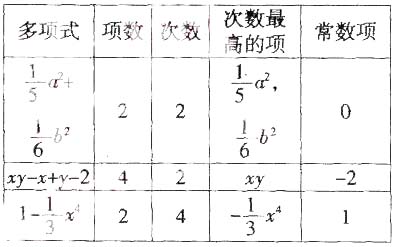 多项式 项数 次数 次数最高的项 常数项
1/5 a²+ 1/6 b² 2 2 1/5 a², 1/6 b² 0
xy-x+y-2 4 2 xy -2
1-1/3 x⁴ 2 4 -1/3 x⁴ 1